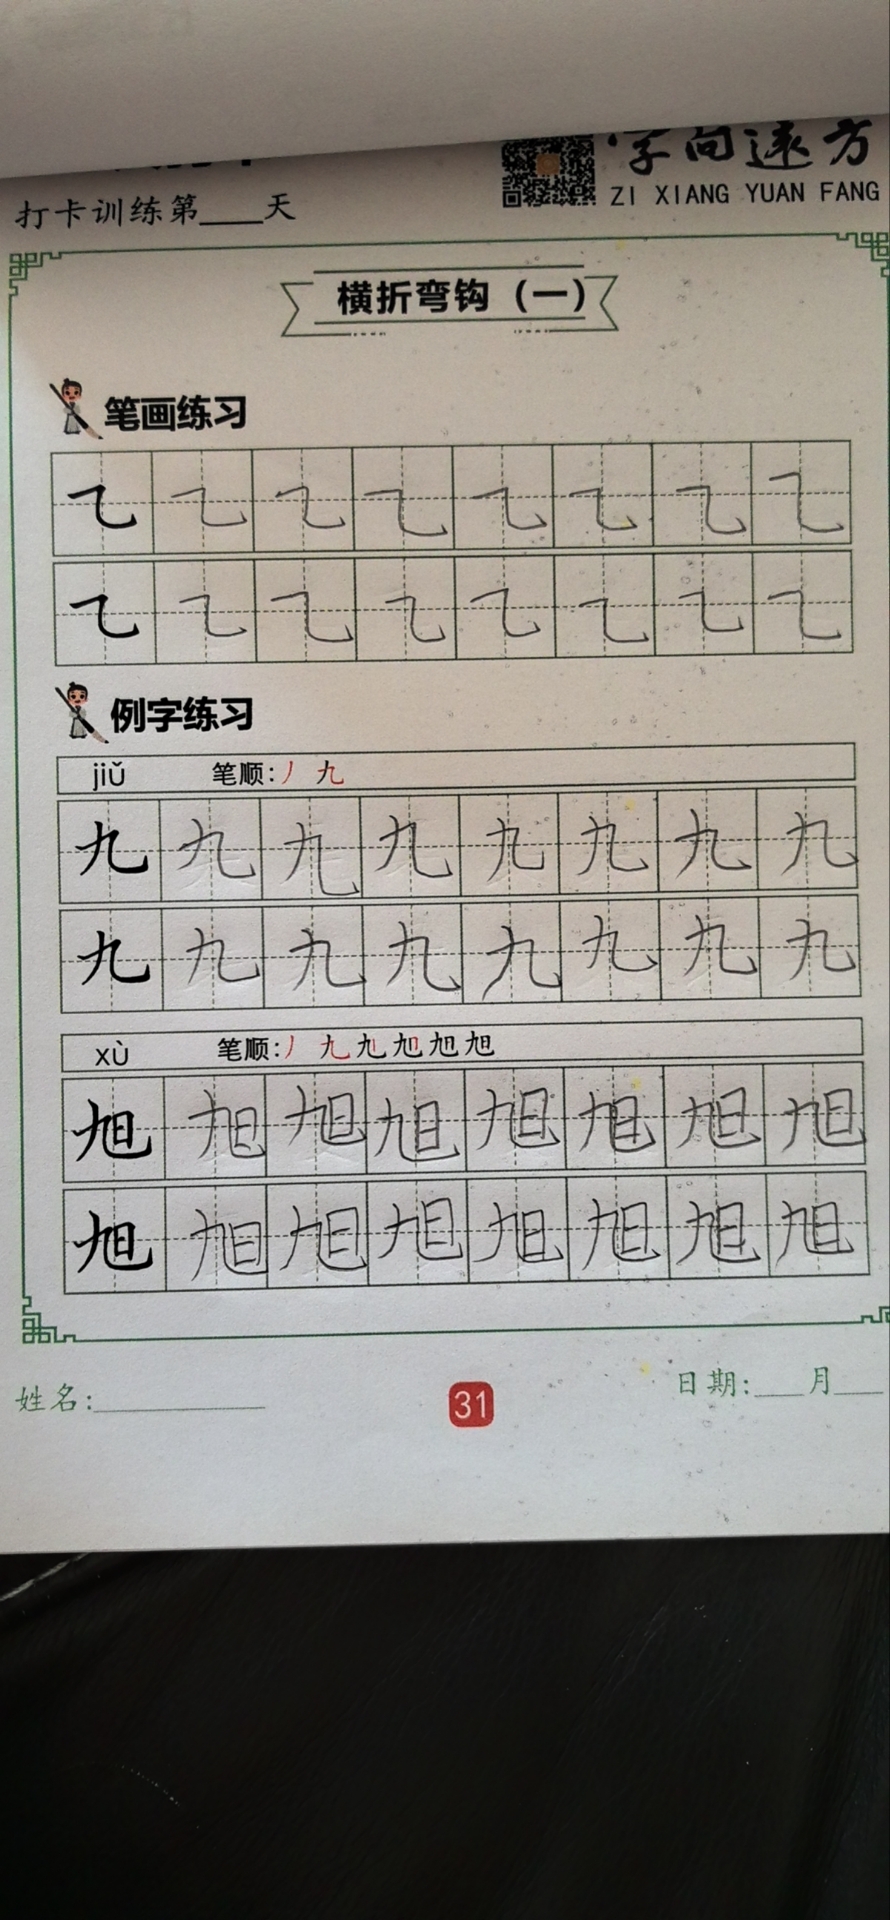 字向远方
ZI XIANG YUAN FANG
打卡训练第____天
横折弯钩（一）
笔画练习
㇈ ㇈ ㇈ ㇈ ㇈ ㇈ ㇈ ㇈
㇈ ㇈ ㇈ ㇈ ㇈ ㇈ ㇈ ㇈
例字练习
jiǔ 笔顺:丿 九
九 九 九 九 九 九 九 九
九 九 九 九 九 九 九 九
xù 笔顺:丿 九 旭 旭 旭 旭
旭 旭 旭 旭 旭 旭 旭 旭
旭 旭 旭 旭 旭 旭 旭 旭
姓名:________ 31 日期:___月___